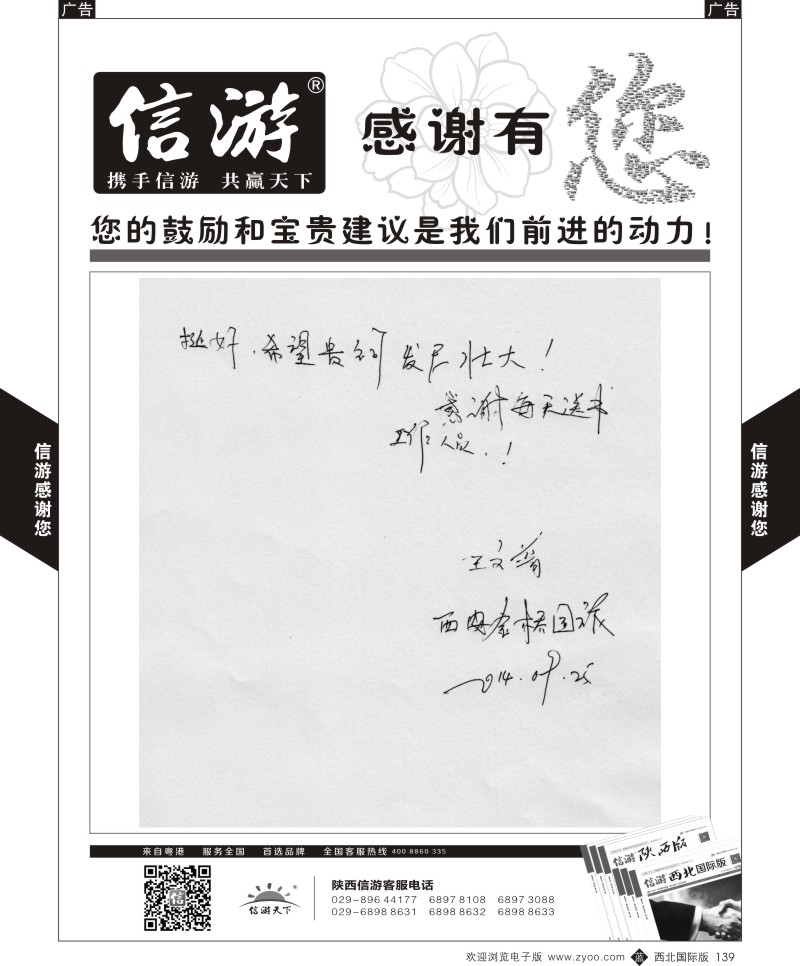 广告
广告
信游®
携手信游 共赢天下
感谢有
您
您的鼓励和宝贵建议是我们前进的动力!
挺好,希望贵公司发展壮大!
感谢每天送书
工作人员!
王文
西安金桥国旅
2014.09.25
信游感谢您
信游感谢您
来自粤港 服务全国 首选品牌 全国客服热线 400 8860 335
信游天下
陕西信游客服电话
029-896 44177 6897 8108 6897 3088
029-6898 8631 6898 8632 6898 8633
信游 陕西版
信游 西北国际版
欢迎浏览电子版 www.zyoo.com 蓝 西北国际版 139